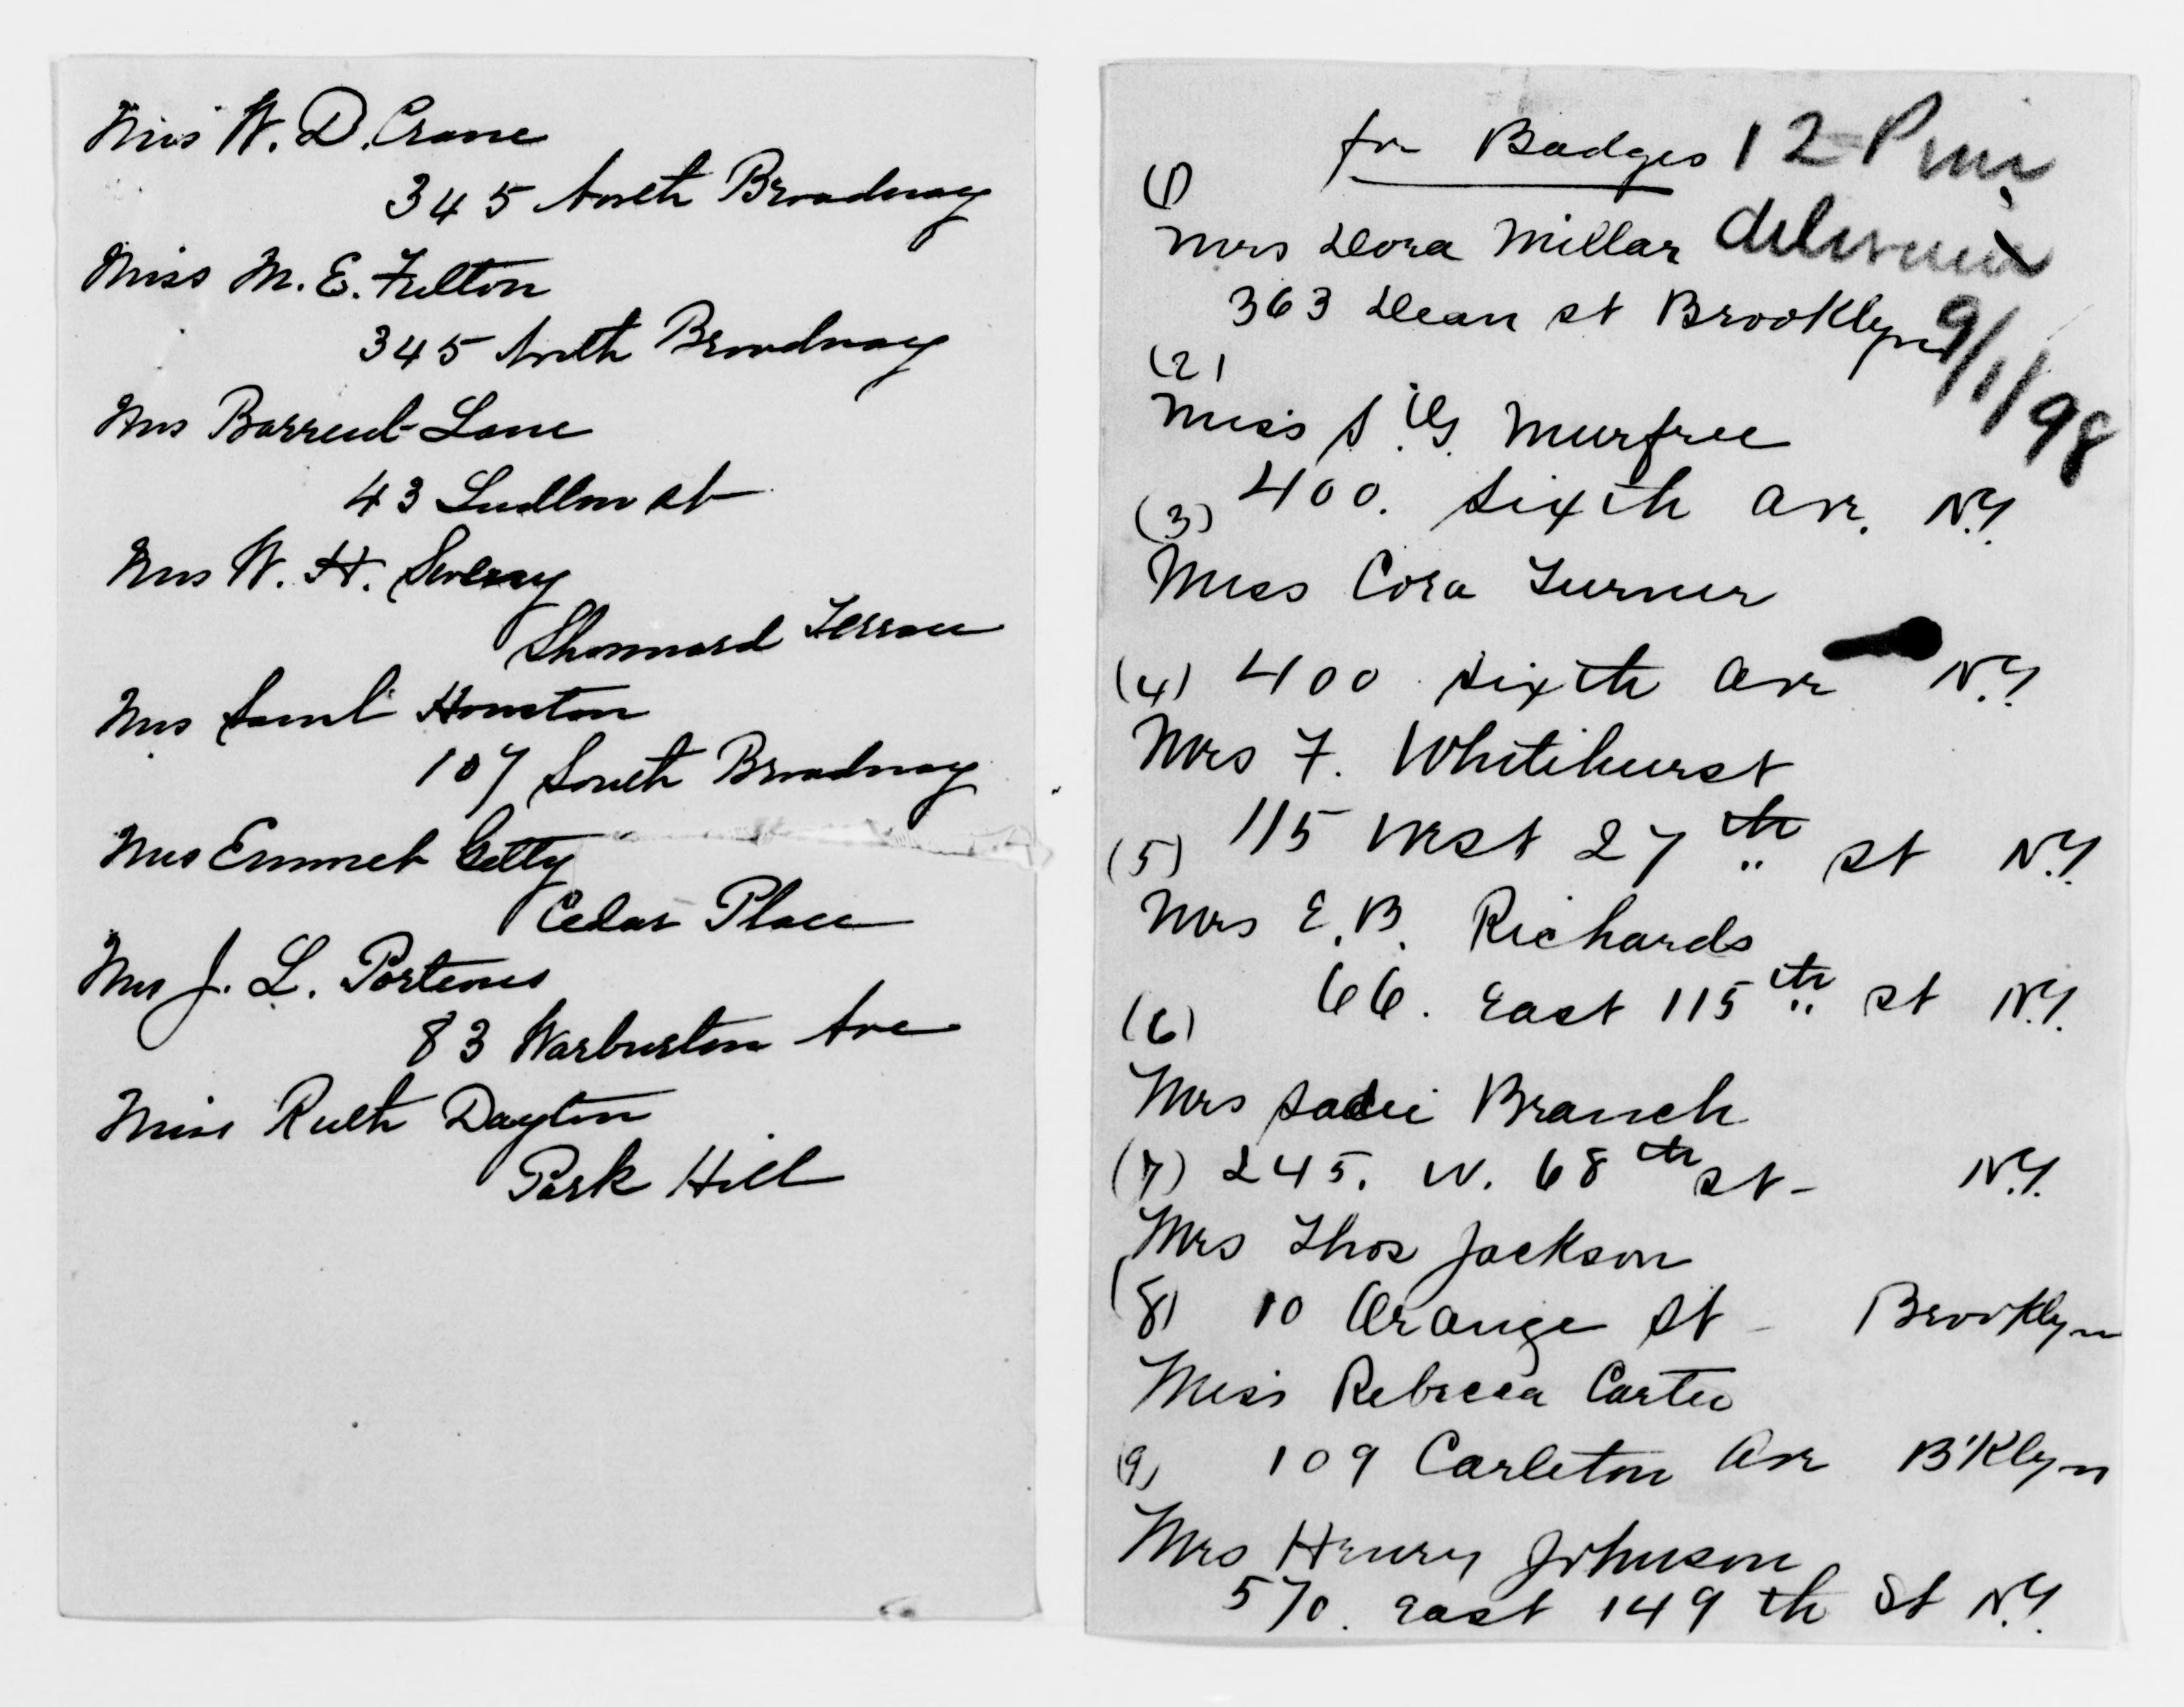 Miss W. D. Crane
345 North Broadway
Miss M. E. Fulton
345 North Broadway
Mrs Lane
43 Ludlow st
Mrs W. H.
Shonnard Terrace
Mrs Saml Houston
107 South Broadway
Mrs Emmet Getty
Cedar Place
Mrs J. L. Porteous
83 Warburton Ave
Miss Ruth Dayton
Park Hill
for Badges 12 Pins
delivered
9/1/98
(1)
Mrs Dora Millar
363 Dean st Brooklyn
(2)
Miss S. G. Murfree
400. Sixth Ave. N.Y.
(3)
Miss Cora Turner
(4) 400 Sixth Ave N.Y.
Mrs F. Whitihurst
115 West 27th st N.Y.
(5)
Mrs E. B. Richards
66. East 115th st N.Y.
(6)
Mrs Sadie Branch
(7) 245. W. 68th st - N.Y.
Mrs Thos Jackson
(8) 10 Orange St - Brooklyn
Miss Rebecca Carter
(9) 109 Carleton Ave B'Klyn
Mrs Henry Johnson
570. East 149th St N.Y.